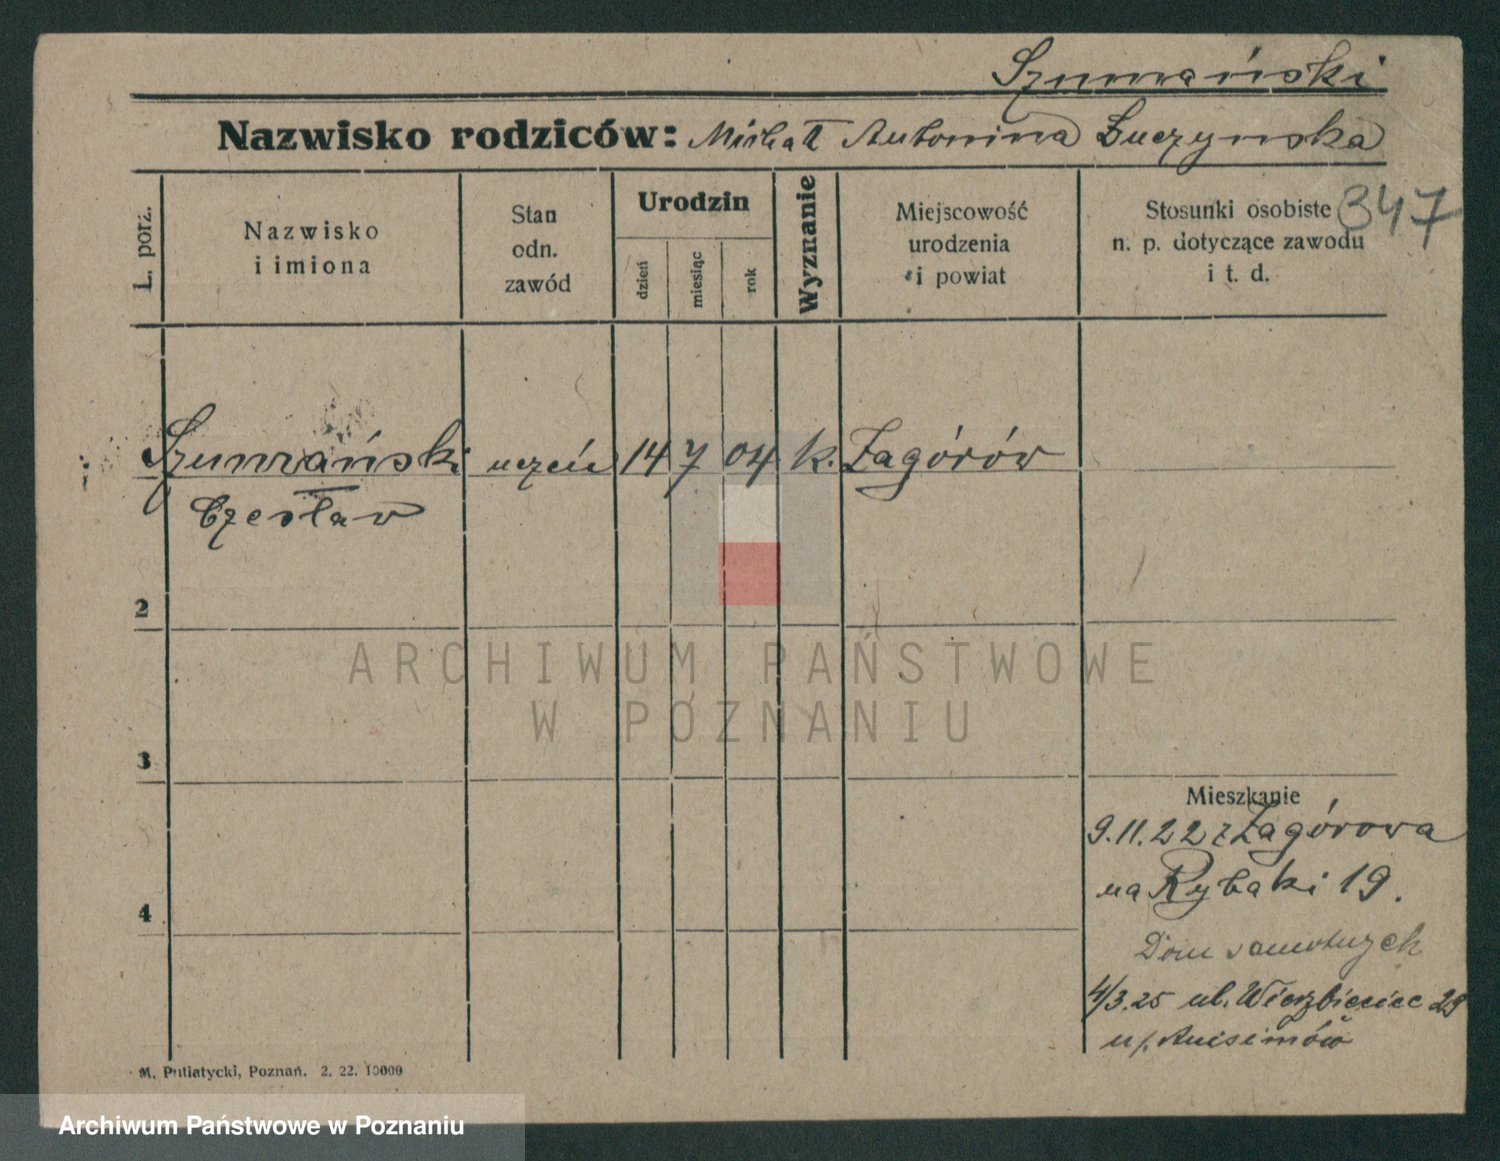 Szumański
Nazwisko rodziców: Michał Antonina Buczynska
347
L. porz.
Nazwisko
i imiona
Stan
odn.
zawód
Urodzin
dzień
miesiąc
rok
Wyznanie
Miejscowość
urodzenia
i powiat
Stosunki osobiste
n. p. dotyczące zawodu
i t. d.
Szumański uczeń 14 7 04 k. Zagórów
Czesław
2
ARCHIWUM PAŃSTWOWE
W POZNANIU
3
Mieszkanie
9.11.22 z Zagórowa
na Rybaki 19.
4
Dom samotnych
4/3.25 ul. Wierzbięcice 29
u p. Anisimów
M. Putiatycki, Poznań. 2. 22. 10000
Archiwum Państwowe w Poznaniu